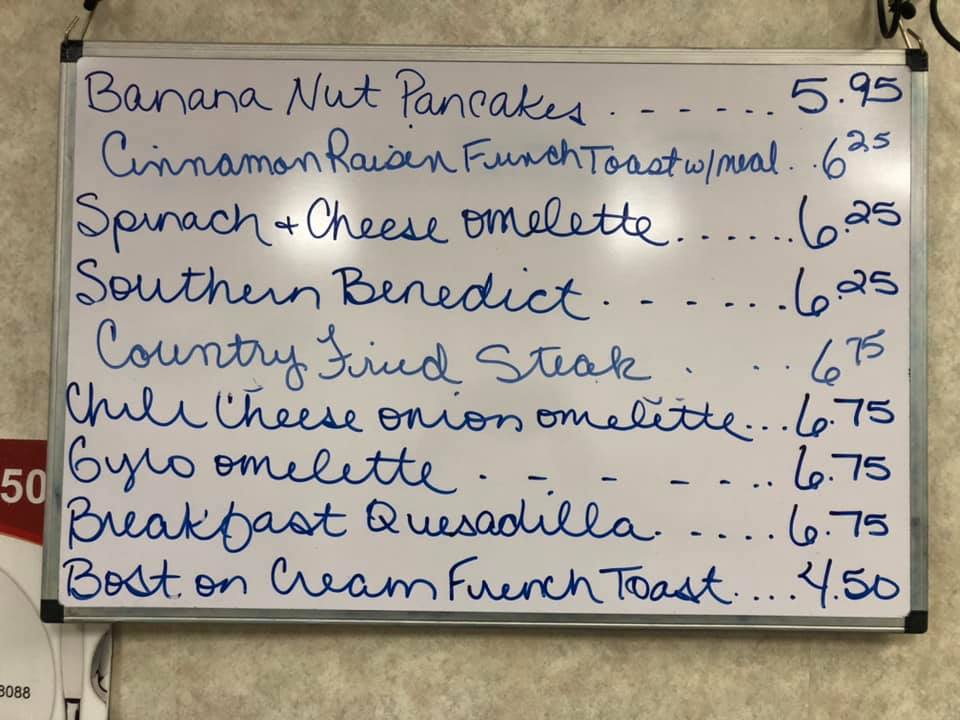 Banana Nut Pancakes . - - - - . . 5.95
Cinnamon Raisen French Toast w/meal . . 6 25
Spinach & Cheese omelette . . . . . . . 6.25
Southern Benedict . - - - . . . 6.25
Country Fried Steak . . . 6 75
Chili Cheese onion omelette... 6.75
Gyro omelette . - - - - . . 6.75
Breakfast Quesadilla . . . . . 6.75
Boston Cream French Toast . . . . 4.50
50
8088